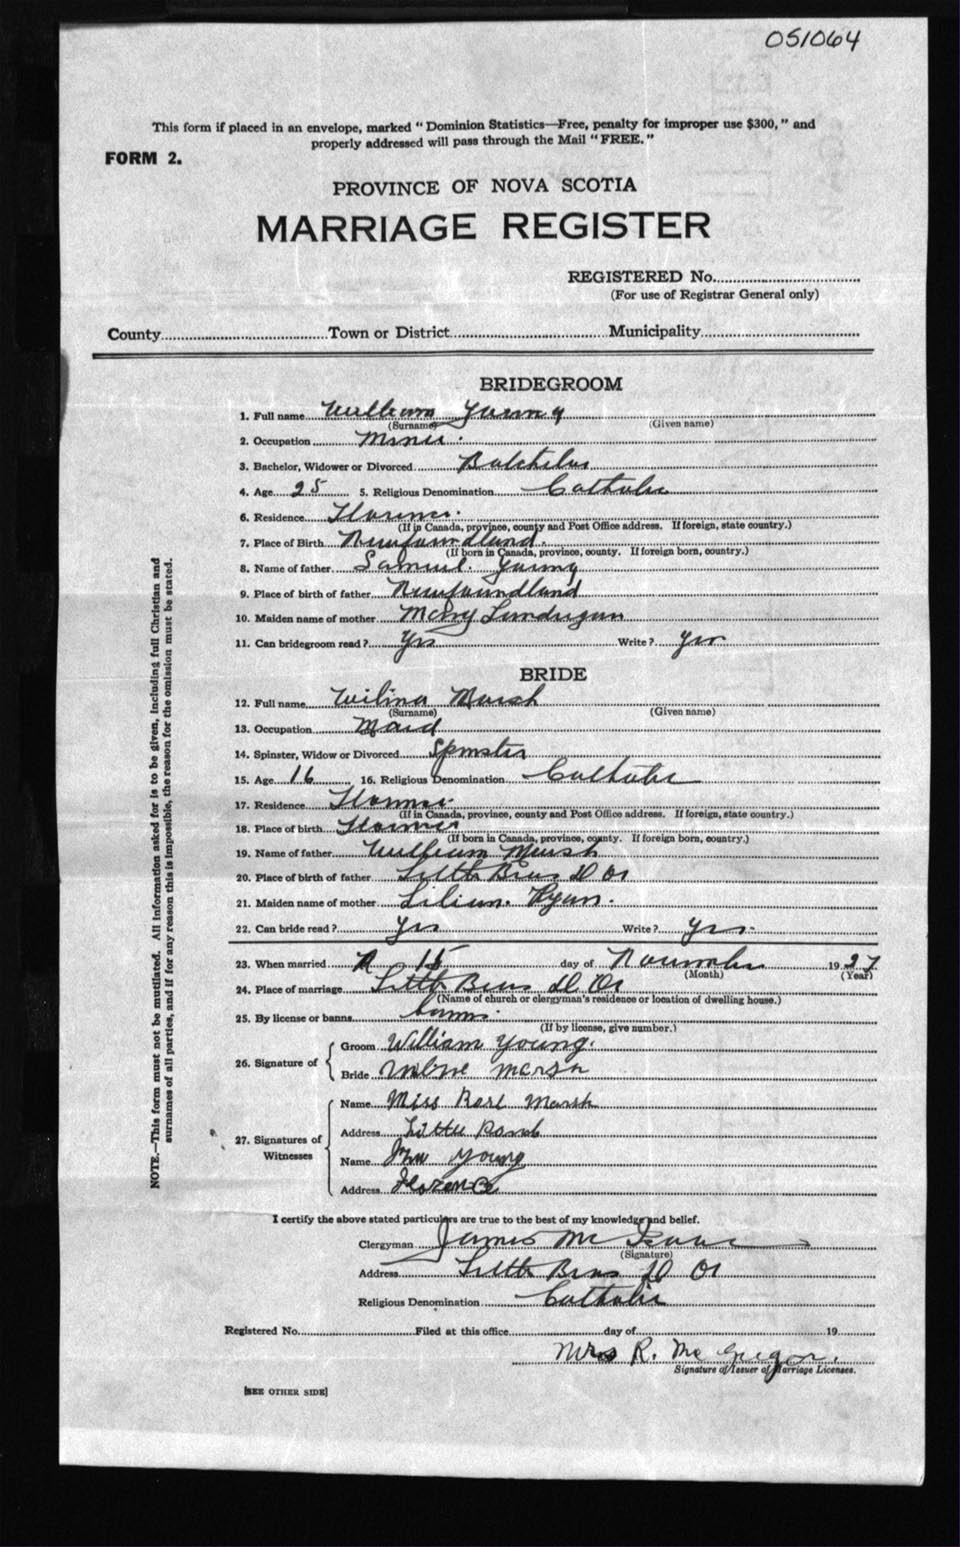 051064
This form if placed in an envelope, marked "Dominion Statistics—Free, penalty for improper use $300," and
properly addressed will pass through the Mail "FREE."
FORM 2.
PROVINCE OF NOVA SCOTIA
MARRIAGE REGISTER
REGISTERED No.
(For use of Registrar General only)
County Town or District Municipality
BRIDEGROOM
1. Full name William Young
(Surname) (Given name)
2. Occupation Miner
3. Bachelor, Widower or Divorced Batchelor
4. Age 25 5. Religious Denomination Catholic
6. Residence Florence
(If in Canada, province, county and Post Office address. If foreign, state country.)
7. Place of Birth Newfoundland
(If born in Canada, province, county. If foreign born, country.)
8. Name of father Samuel Young
9. Place of birth of father Newfoundland
10. Maiden name of mother Mary Lundrigan
11. Can bridegroom read? Yes Write? Yes
BRIDE
12. Full name Wilina Marsh
(Surname) (Given name)
13. Occupation Maid
14. Spinster, Widow or Divorced Spinster
15. Age 16 16. Religious Denomination Catholic
17. Residence Florence
(If in Canada, province, county and Post Office address. If foreign, state country.)
18. Place of birth Florence
(If born in Canada, province, county. If foreign born, country.)
19. Name of father William Marsh
20. Place of birth of father Little Bras D Or
21. Maiden name of mother Lilian Ryan
22. Can bride read? Yes Write? Yes
23. When married 15 day of November 1927
(Month) (Year)
24. Place of marriage Little Bras D Or
(Name of church or clergyman's residence or location of dwelling house.)
25. By license or banns banns
(If by license, give number.)
26. Signature of
Groom William Young
Bride Marsh
27. Signatures of Witnesses
Name Miss Marsh
Address Little Pond
Name Young
Address Florence
I certify the above stated particulars are true to the best of my knowledge and belief.
Clergyman James Mc Isaac
(Signature)
Address Little Bras D Or
Religious Denomination Catholic
Registered No. Filed at this office day of 19
Mrs R. Mc Gregor.
Signature of Issuer of Marriage Licenses.
[SEE OTHER SIDE]
NOTE.—This form must not be mutilated. All information asked for is to be given, including full Christian and
surnames of all parties, and if for any reason this is impossible, the reason for the omission must be stated.